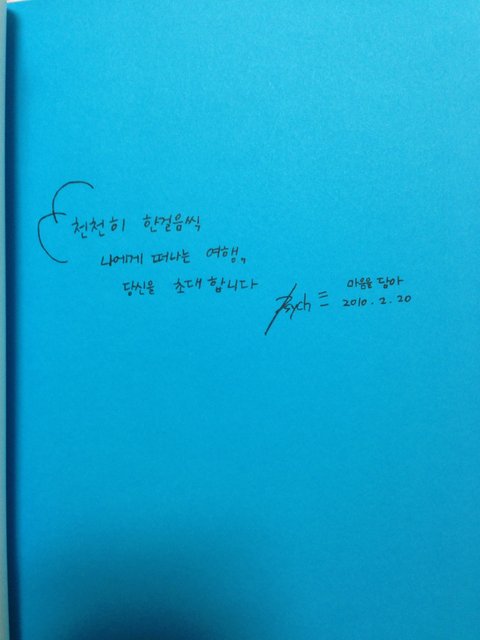 천천히 한걸음씩
나에게 떠나는 여행,
당신을 초대 합니다
Psych 마음을 담아
2010. 2. 20